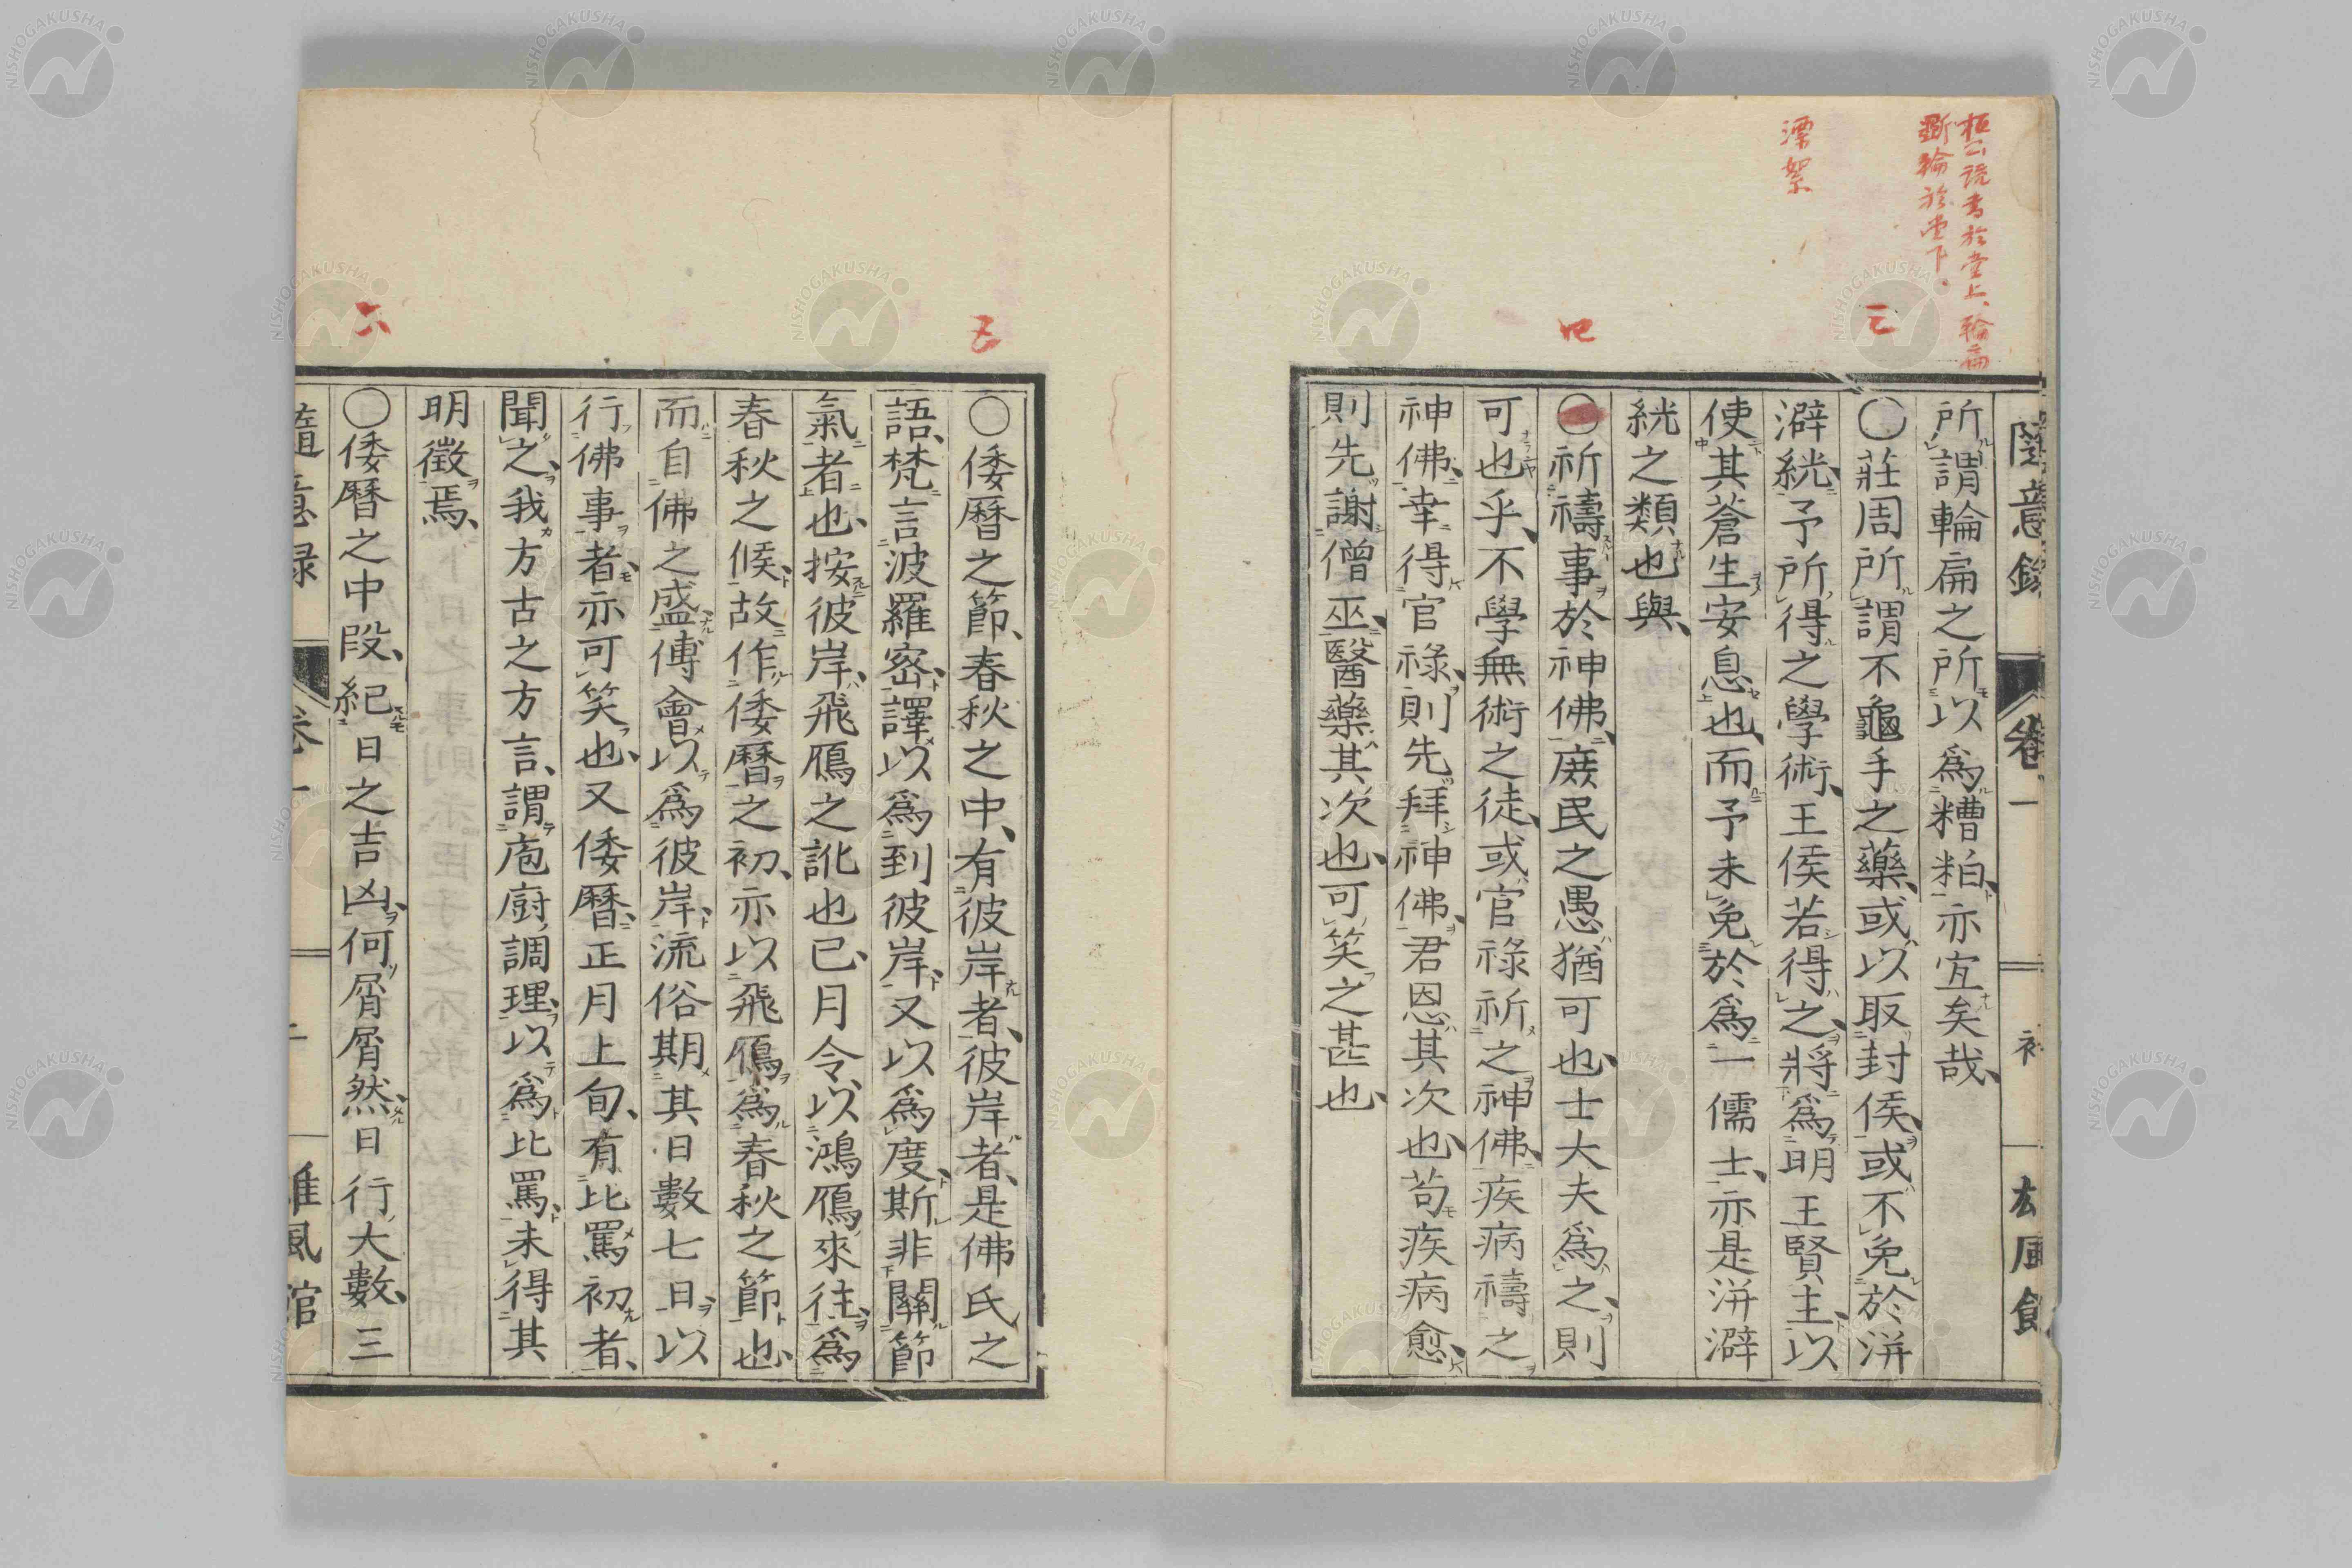 桓公讀書於堂上、輪扁
斵輪於堂下、
漂絮
三
四
隨意錄 卷一
所謂輪扁之所以爲糟粕、亦宜矣哉、
〇莊周所謂不龜手之藥、或以取封侯、或不免於洴
澼絖、予所得之學術、王侯若得之、將爲明王賢主、以
使其蒼生安息也、而予未免於爲一儒士、亦是洴澼
絖之類也與、
〇祈禱事於神佛、庶民之愚猶可也、士大夫爲之、則
可也乎、不學無術之徒、或官祿祈之神佛、疾病禱之
神佛、幸得官祿、則先拜神佛、君恩其次也、苟疾病愈、
則先謝僧巫、醫藥其次也、可笑之甚也、
五
六
〇倭曆之節、春秋之中、有彼岸者、彼岸者、是佛氏之
語、梵言波羅密、譯以爲到彼岸、又以爲度、斯非關節
氣者也、按彼岸、飛鴈之訛也已、月令、以鴻鴈來往、爲
春秋之候、故作倭曆之初、亦以飛鴈爲春秋之節也、
而自佛之盛、傅會以爲彼岸、流俗期其日數七日、以
行佛事者、亦可笑也、又倭曆、正月上旬、有比罵初者、
聞之、我方古之方言、謂庖廚調理、以爲比罵、未得其
明徵焉、
〇倭曆之中段、紀日之吉凶、何屑屑然、日行大數、三
隨意錄 卷一